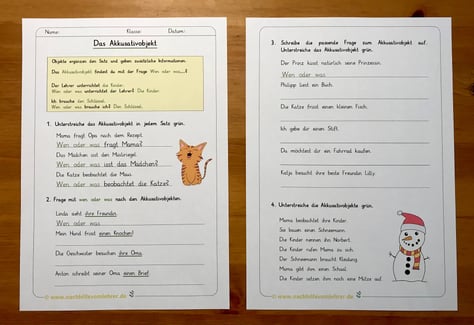 Name:
Klasse:
Datum:
Das Akkusativobjekt
Objekte ergänzen den Satz und geben zusätzliche Informationen.
Das Akkusativobjekt findest du mit der Frage Wen oder was...?
Der Lehrer unterrichtet die Kinder.
Wen oder was unterrichtet der Lehrer? Die Kinder.
Ich brauche den Schlüssel.
Wen oder was brauche ich? Den Schlüssel.
1. Unterstreiche das Akkusativobjekt in jedem Satz grün.
Mama fragt Opa nach dem Rezept.
Wen oder was fragt Mama?
Das Mädchen isst den Müsliriegel.
Wen oder was isst das Mädchen?
Die Katze beobachtet die Maus.
Wen oder was beobachtet die Katze?
2. Frage mit wen oder was nach den Akkusativobjekten.
Linda sieht ihre Freundin.
Wen oder was
Mein Hund frisst einen Knochen!
Die Geschwister besuchen ihre Oma.
Anton schreibt seiner Oma einen Brief.
© www.nachhilfevomlehrer.de
3. Schreibe die passende Frage zum Akkusativobjekt auf.
Unterstreiche das Akkusativobjekt grün.
Der Prinz küsst natürlich seine Prinzessin.
Wen oder was
Philipp liest ein Buch.
Die Katze frisst einen kleinen Fisch.
Ich gebe dir einen Stift.
Du möchtest dir ein Fahrrad kaufen.
Katja besucht ihre beste Freundin Lilly.
4. Unterstreiche die Akkusativobjekte grün.
Mama beobachtet ihre Kinder.
Sie bauen einen Schneemann.
Die Kinder nennen ihn Norbert.
Die Kinder rufen Mama zu sich.
Der Schneemann braucht Kleidung.
Mama gibt ihm einen Schal.
Die Kinder setzen ihm noch eine Mütze auf.
© www.nachhilfevomlehrer.de